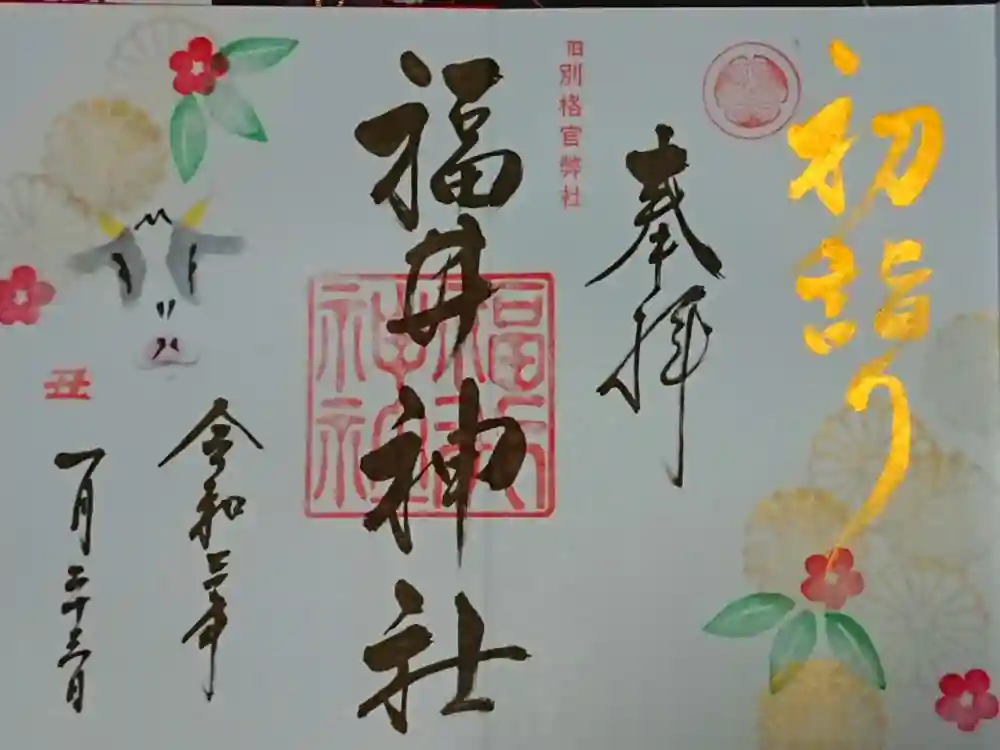 初詣り
奉拝
旧別格官幣社
福井神社
福井神社
令和三年
一月二十三日
丑